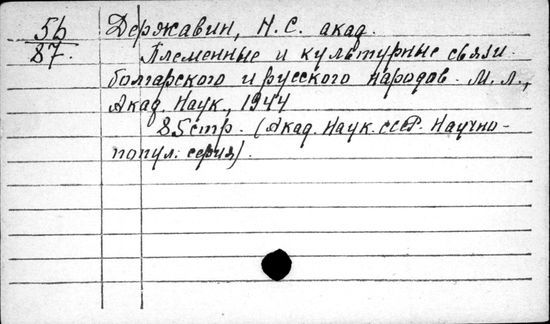 56 Державин, Н.С. акад.
87. Племенные и культурные связи
болгарского и русского народов. М. Л.,
Акад. Наук, 1944
85стр. (Акад. Наук. СССР. Научно-
попул. серия).